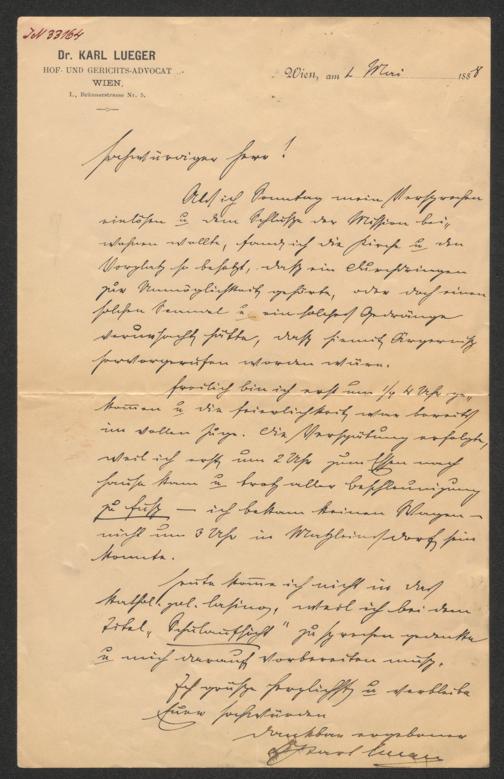 IN 33164
Dr. KARL LUEGER
HOF- UND GERICHTS-ADVOCAT
WIEN,
I., Bräunerstrasse Nr. 5.
Wien, am 1. Mai 1888
Hochwürdiger Herr!
Als ich Sonntag mein Versprechen
einlösen u dem Schluße der Mission bei-
wohnen wollte, fand ich die Kirche u den
Vorplatz so besetzt, daß ein Durchdringen
zur Unmöglichkeit gehörte, oder doch einen
solchen u ein solches Gedränge
verursacht hätte, daß hiemit Ärgerniß
hervorgerufen worden wäre.
Freilich bin ich erst um 1/2 4 Uhr ge-
kommen u die Feierlichkeit war bereits
im vollen Zuge. Die Verspätung erfolgte,
weil ich erst um 2 Uhr zum Essen nach
Hause kam u trotz aller Beschleunigung
zu Fuß — ich bekam keinen Wagen —
nicht um 3 Uhr in Matzleinsdorf sein
konnte.
Heute komme ich nicht in das
kathol. pol. Casino, weil ich bei dem
Titel „Schulaufsicht" zu sprechen gedenke
u mich darauf vorbereiten muß.
Ich grüße herzlichst u verbleibe
Euer Hochwürden
dankbar ergebener
Dr Karl Lueger